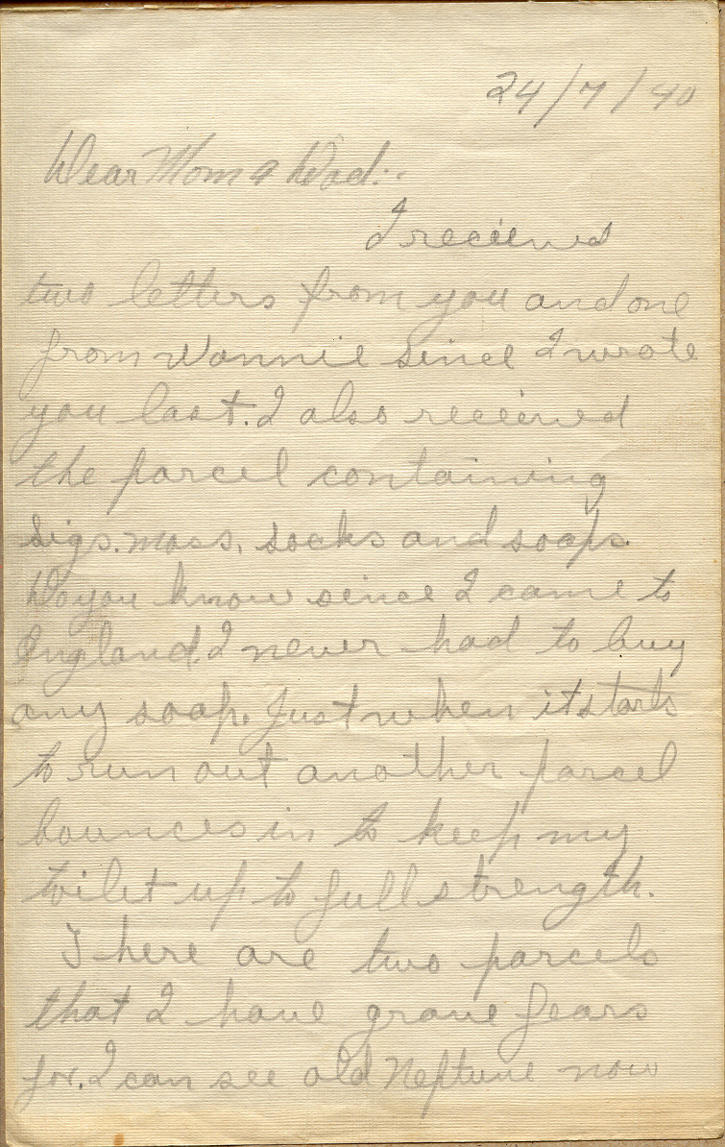 24/7/40
Dear Mom & Dad:-
I recieved
two letters from you and one
from Wannie since I wrote
you last. I also recieved
the parcel containing
sigs. mass, socks and soaps.
Do you know since I came to
England I never had to buy
any soap. Just when it starts
to run out another parcel
bounces in to keep my
toilet up to full strength.
There are two parcels
that I have grave fears
for. I can see old Neptune now